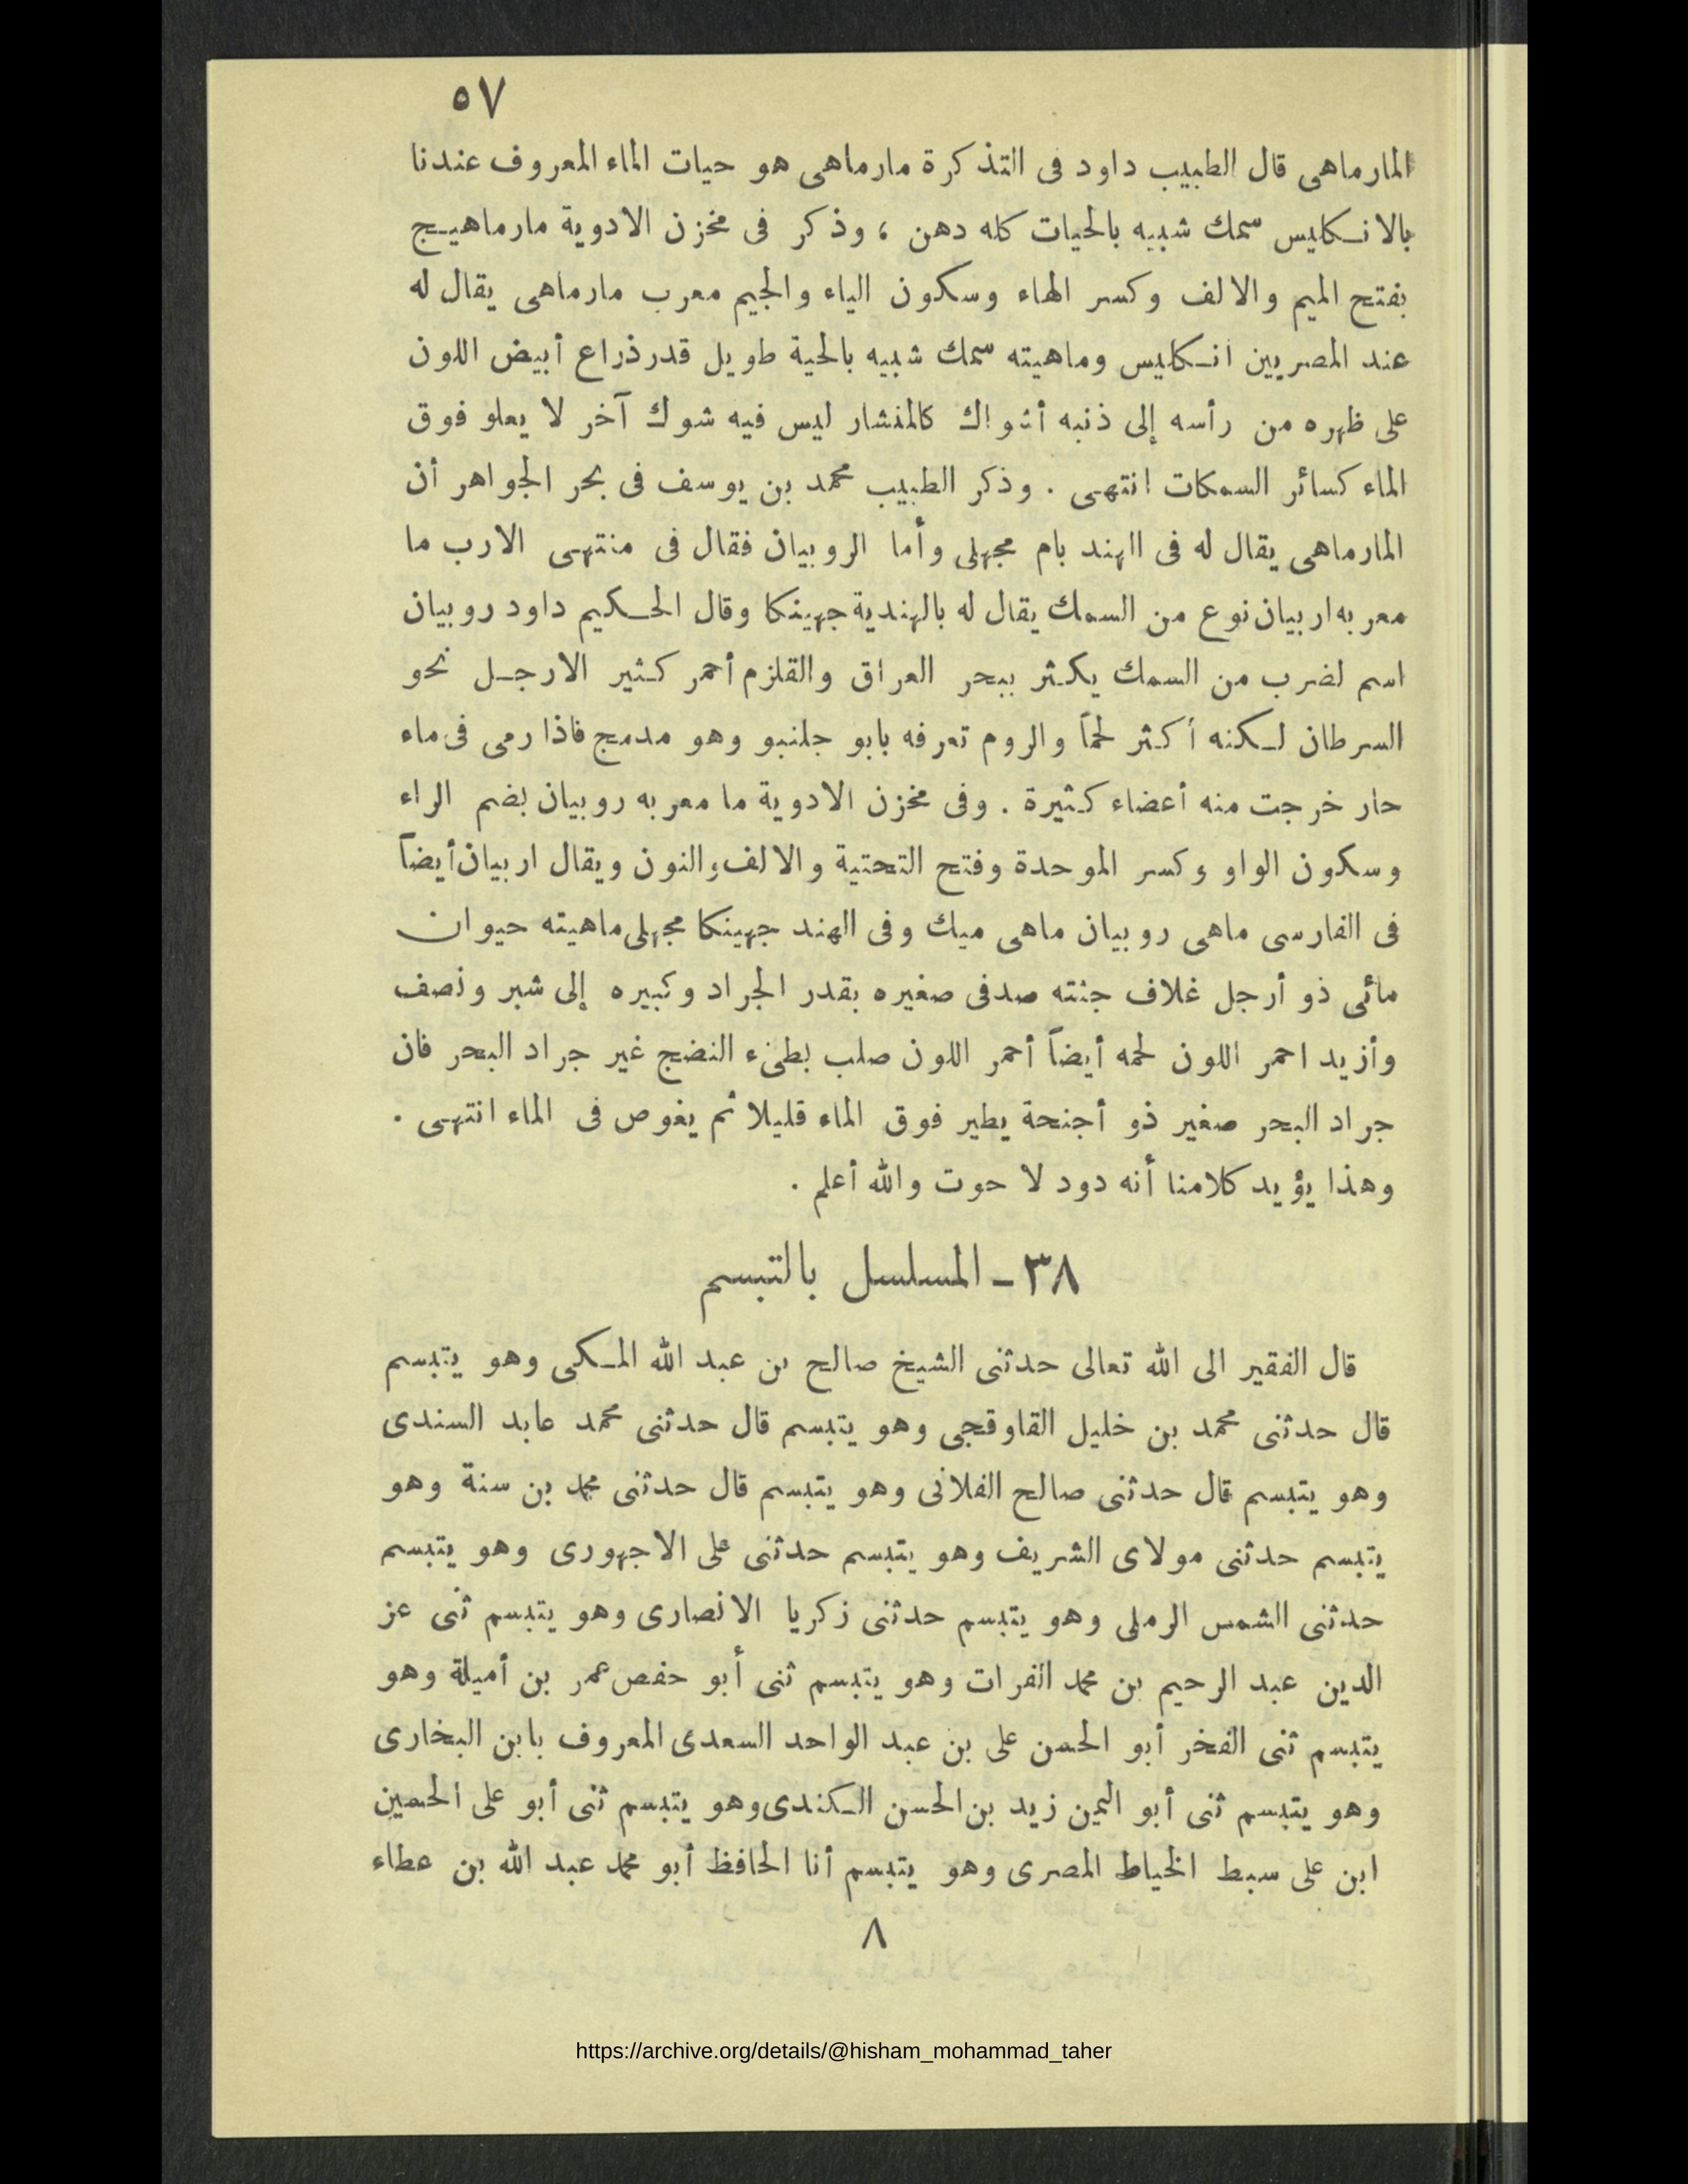 ٥٧
المارماهى قال الطبيب داود فى التذكرة مارماهى هو حيات الماء المعروف عندنا
بالانكليس سمك شبيه بالحيات كله دهن ، وذكر فى مخزن الادوية مارماهيج
بفتح الميم والالف وكسر الهاء وسكون الياء والجيم معرب مارماهى يقال له
عند المصريين انكليس وماهيته سمك شبيه بالحية طويل قدر ذراع أبيض اللون
على ظهره من رأسه إلى ذنبه أشواك كالمنشار ليس فيه شوك آخر لا يعلو فوق
الماء كسائر السمكات انتهى . وذكر الطبيب محمد بن يوسف فى بحر الجواهر أن
المارماهى يقال له فى الهند بام مجهلى وأما الروبيان فقال فى منتهى الارب ما
معربه اربيان نوع من السمك يقال له بالهندية جهينكا وقال الحكيم داود روبيان
اسم لضرب من السمك يكثر ببحر العراق والقلزم أحمر كثير الارجل نحو
السرطان لكنه أكثر لحمًا والروم تعرفه بابو جلنبو وهو مدمج فاذا رمى فى ماء
حار خرجت منه أعضاء كثيرة . وفى مخزن الادوية ما معربه روبيان بضم الراء
وسكون الواو وكسر الموحدة وفتح التحتية والالف والنون ويقال اربيان أيضاً
فى الفارسى ماهى روبيان ماهى ميك وفى الهند جهينكا مجهلى ماهيته حيوان
مائى ذو أرجل غلاف جثته صدفى صغيره بقدر الجراد وكبيره إلى شبر ونصف
وأزيد احمر اللون لحمه أيضاً أحمر اللون صلب بطىء النضج غير جراد البحر فان
جراد البحر صغير ذو أجنحة يطير فوق الماء قليلا ثم يغوص فى الماء انتهى .
وهذا يؤيد كلامنا أنه دود لا حوت والله أعلم .
٣٨ - المسلسل بالتبسم
قال الفقير الى الله تعالى حدثنى الشيخ صالح بن عبد الله المكى وهو يتبسم
قال حدثنى محمد بن خليل القاوقجى وهو يتبسم قال حدثنى محمد عابد السندى
وهو يتبسم قال حدثنى صالح الفلانى وهو يتبسم قال حدثنى محمد بن سنة وهو
يتبسم حدثنى مولاى الشريف وهو يتبسم حدثنى على الاجهورى وهو يتبسم
حدثنى الشمس الرملى وهو يتبسم حدثنى زكريا الانصارى وهو يتبسم ثنى عز
الدين عبد الرحيم بن محمد الفرات وهو يتبسم ثنى أبو حفص عمر بن أميلة وهو
يتبسم ثنى الفخر أبو الحسن على بن عبد الواحد السعدى المعروف بابن البخارى
وهو يتبسم ثنى أبو اليمن زيد بن الحسن الكندى وهو يتبسم ثنى أبو على الحسين
ابن على سبط الخياط المصرى وهو يتبسم أنا الحافظ أبو محمد عبد الله بن عطاء
٨
https://archive.org/details/@hisham_mohammad_taher